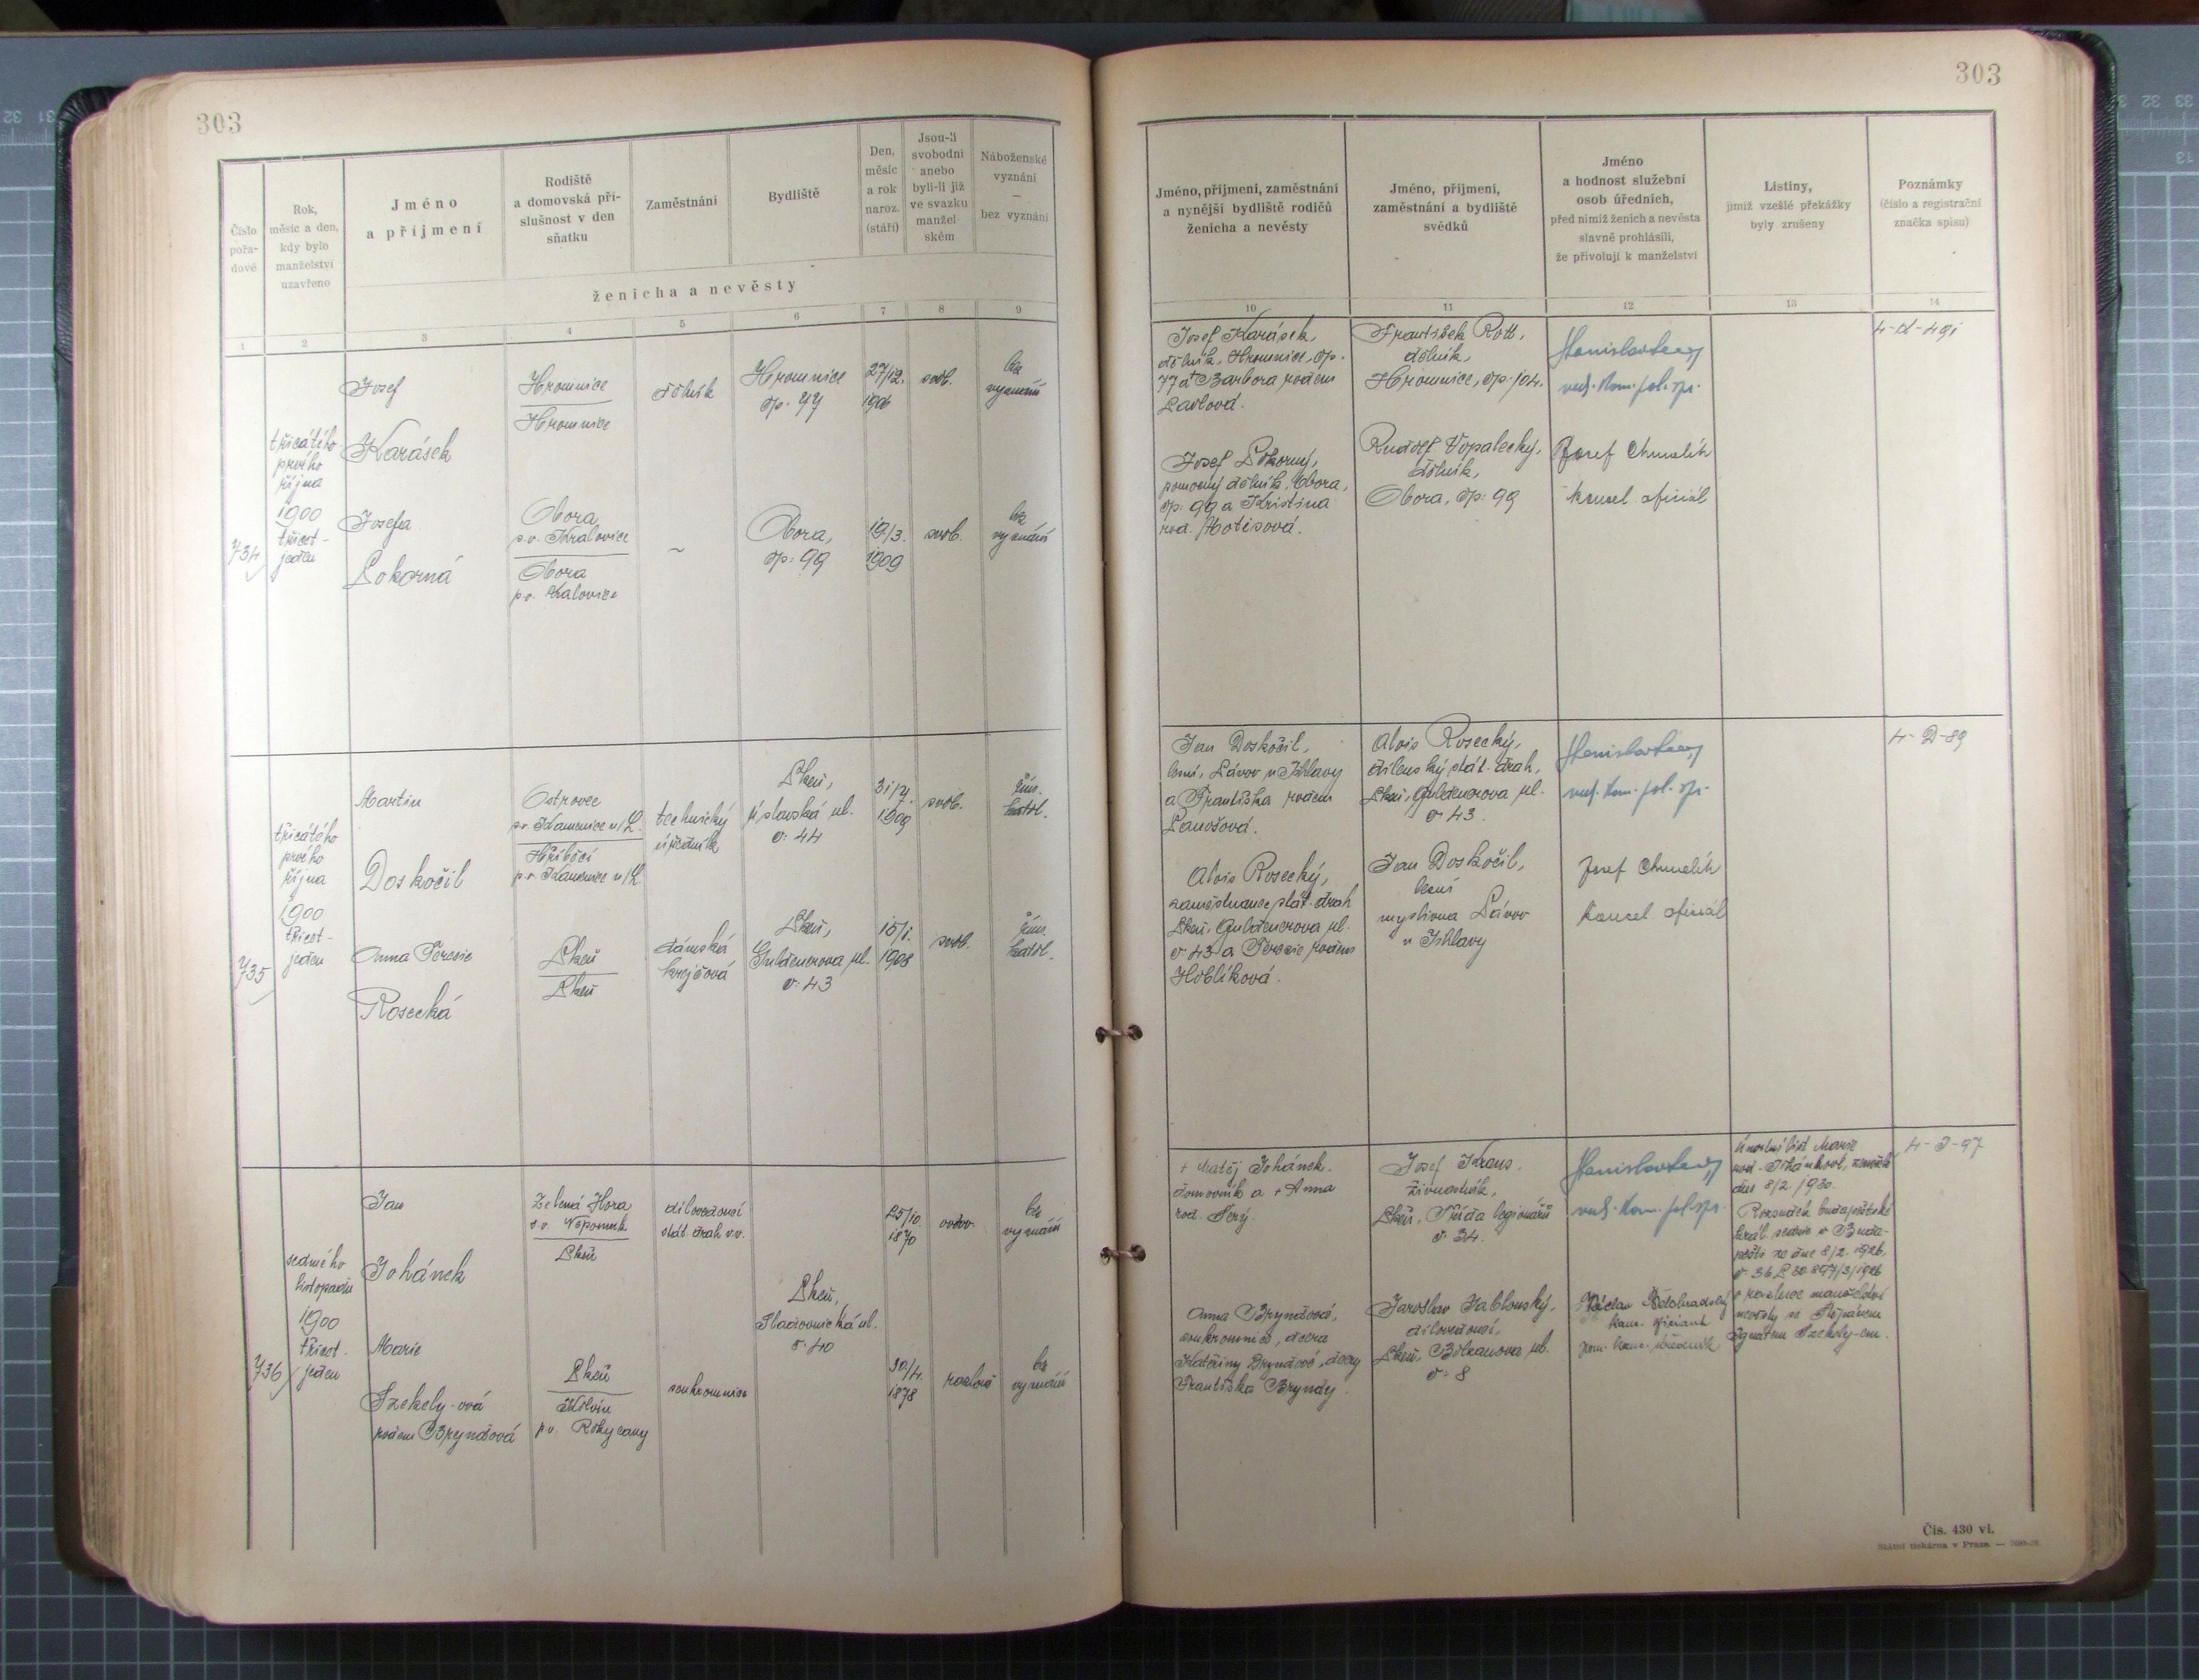 303
Číslo
pořa-
dové
Rok,
měsíc a den,
kdy bylo
manželství
uzavřeno
Jméno
a příjmení
Rodiště
a domovská pří-
slušnost v den
sňatku
Zaměstnání
Bydliště
Den,
měsíc
a rok
naroz.
(stáří)
Jsou-li
svobodni
anebo
byli-li již
ve svazku
manžel-
ském
Náboženské
vyznání
—
bez vyznání
ženicha a nevěsty
1 2 3 4 5 6 7 8 9
734
třicátého
prvého
října
1900
třicet-
jeden
Josef
Karásek
Hromnice
Hromnice
dělník
Hromnice
čp. 77
27/12.
1906
svob.
bez
vyznání
Josefa
Pokorná
Obora,
s.o. Kralovice
Obora
p.o. Kralovice
~
Obora,
čp. 99
19/3.
1909
svob.
bez
vyznání
735
třicátého
prvého
října
1900
třicet-
jeden
Martin
Doskočil
Ostrovec
p.o. Kamenice n/L.
Hříběcí
p.o. Kamenice n/L.
technický
úředník
Plzeň,
jislavská ul.
č. 44
31/7.
1909
svob.
řím.
katol.
Anna Terezie
Rosecká
Plzeň
Plzeň
dámská
krejčová
Plzeň,
Guldenerova ul.
č. 43
15/1.
1908
svob.
řím.
katol.
736
sedmého
listopadu
1900
třicet-
jeden
Jan
Johánek
Zelená Hora
s.o. Nepomuk
Plzeň
dílovedoucí
stát. drah v.v.
25/10.
1870
vdov.
bez
vyznání
Plzeň,
Sladovnická ul.
č. 40
Marie
Szekely-ová
rodem Bryndová
Plzeň
Kilvín
p.o. Rokycany
soukromnice
30/4.
1878
rozluč.
bez
vyznání
303
Jméno, příjmení, zaměstnání
a nynější bydliště rodičů
ženicha a nevěsty
Jméno, příjmení,
zaměstnání a bydliště
svědků
Jméno
a hodnost služební
osob úředních,
před nimiž ženich a nevěsta
slavně prohlásili,
že přivolují k manželství
Listiny,
jimiž vzešlé překážky
byly zrušeny
Poznámky
(číslo a registrační
značka spisu)
10 11 12 13 14
Josef Karásek,
dělník, Hromnice, čp.
77 a Barbora rodem
Pavlová.
František Rott,
dělník,
Hromnice, čp. 104.
4-d-491
Josef Pokorný,
pomocný dělník, Obora,
čp. 99 a Kristina
rod. Motisová.
Rudolf Vopalecký,
dělník,
Obora, čp. 99
Josef Chmelík
kancel. oficiál
Jan Doskočil,
lesní, Pávov u Jihlavy
a Františka rodem
Panošová.
Alois Rosecký,
dílenský stát. drah,
Plzeň, Guldenerova ul.
č. 43.
4-D-89
Alois Rosecký,
zaměstnanec stát. drah
Plzeň, Guldenerova ul.
č. 43 a Terezie rodem
Hoblíková.
Jan Doskočil,
lesní
myslivna Pávov
u Jihlavy
Josef Chmelík
kancel. oficiál
† Matěj Johánek.
domovník a † Anna
rod. Šerý.
Josef Kraus.
živnostník,
Plzeň, Třída legionářů
č. 34.
Úmrtní list Marie
rod. Johánkové, zemřelé
dne 8/2. 1930.
Rozsudek budapešťské
král. sedrie v Buda-
pešti ze dne 8/2. 1926.
o rozluce manželství
nevěsty se Štěpánem
Ignátem Szekely-em.
4-J-97
Anna Bryndová,
soukromnice, dcera
Kateřiny Bryndové, dcery
Františka Bryndy.
Jaroslav Jablonský,
dílovedoucí,
Plzeň,
č. 8
Čís. 430 vl.
Státní tiskárna v Praze. —